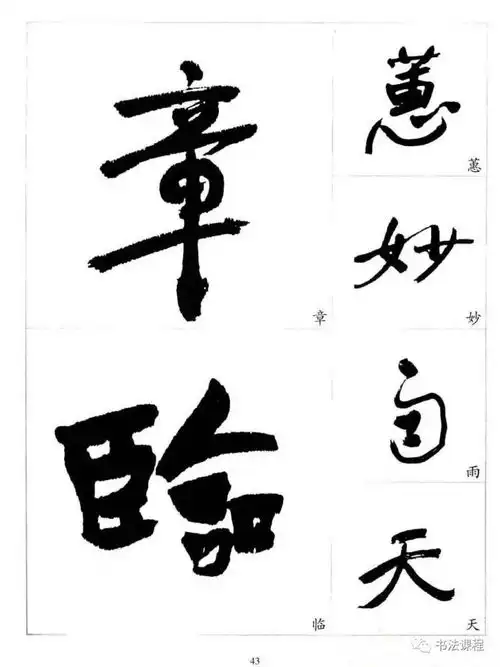 章
章
臨
临
蕙
蕙
妙
妙
雨
雨
天
天
43
书法课程